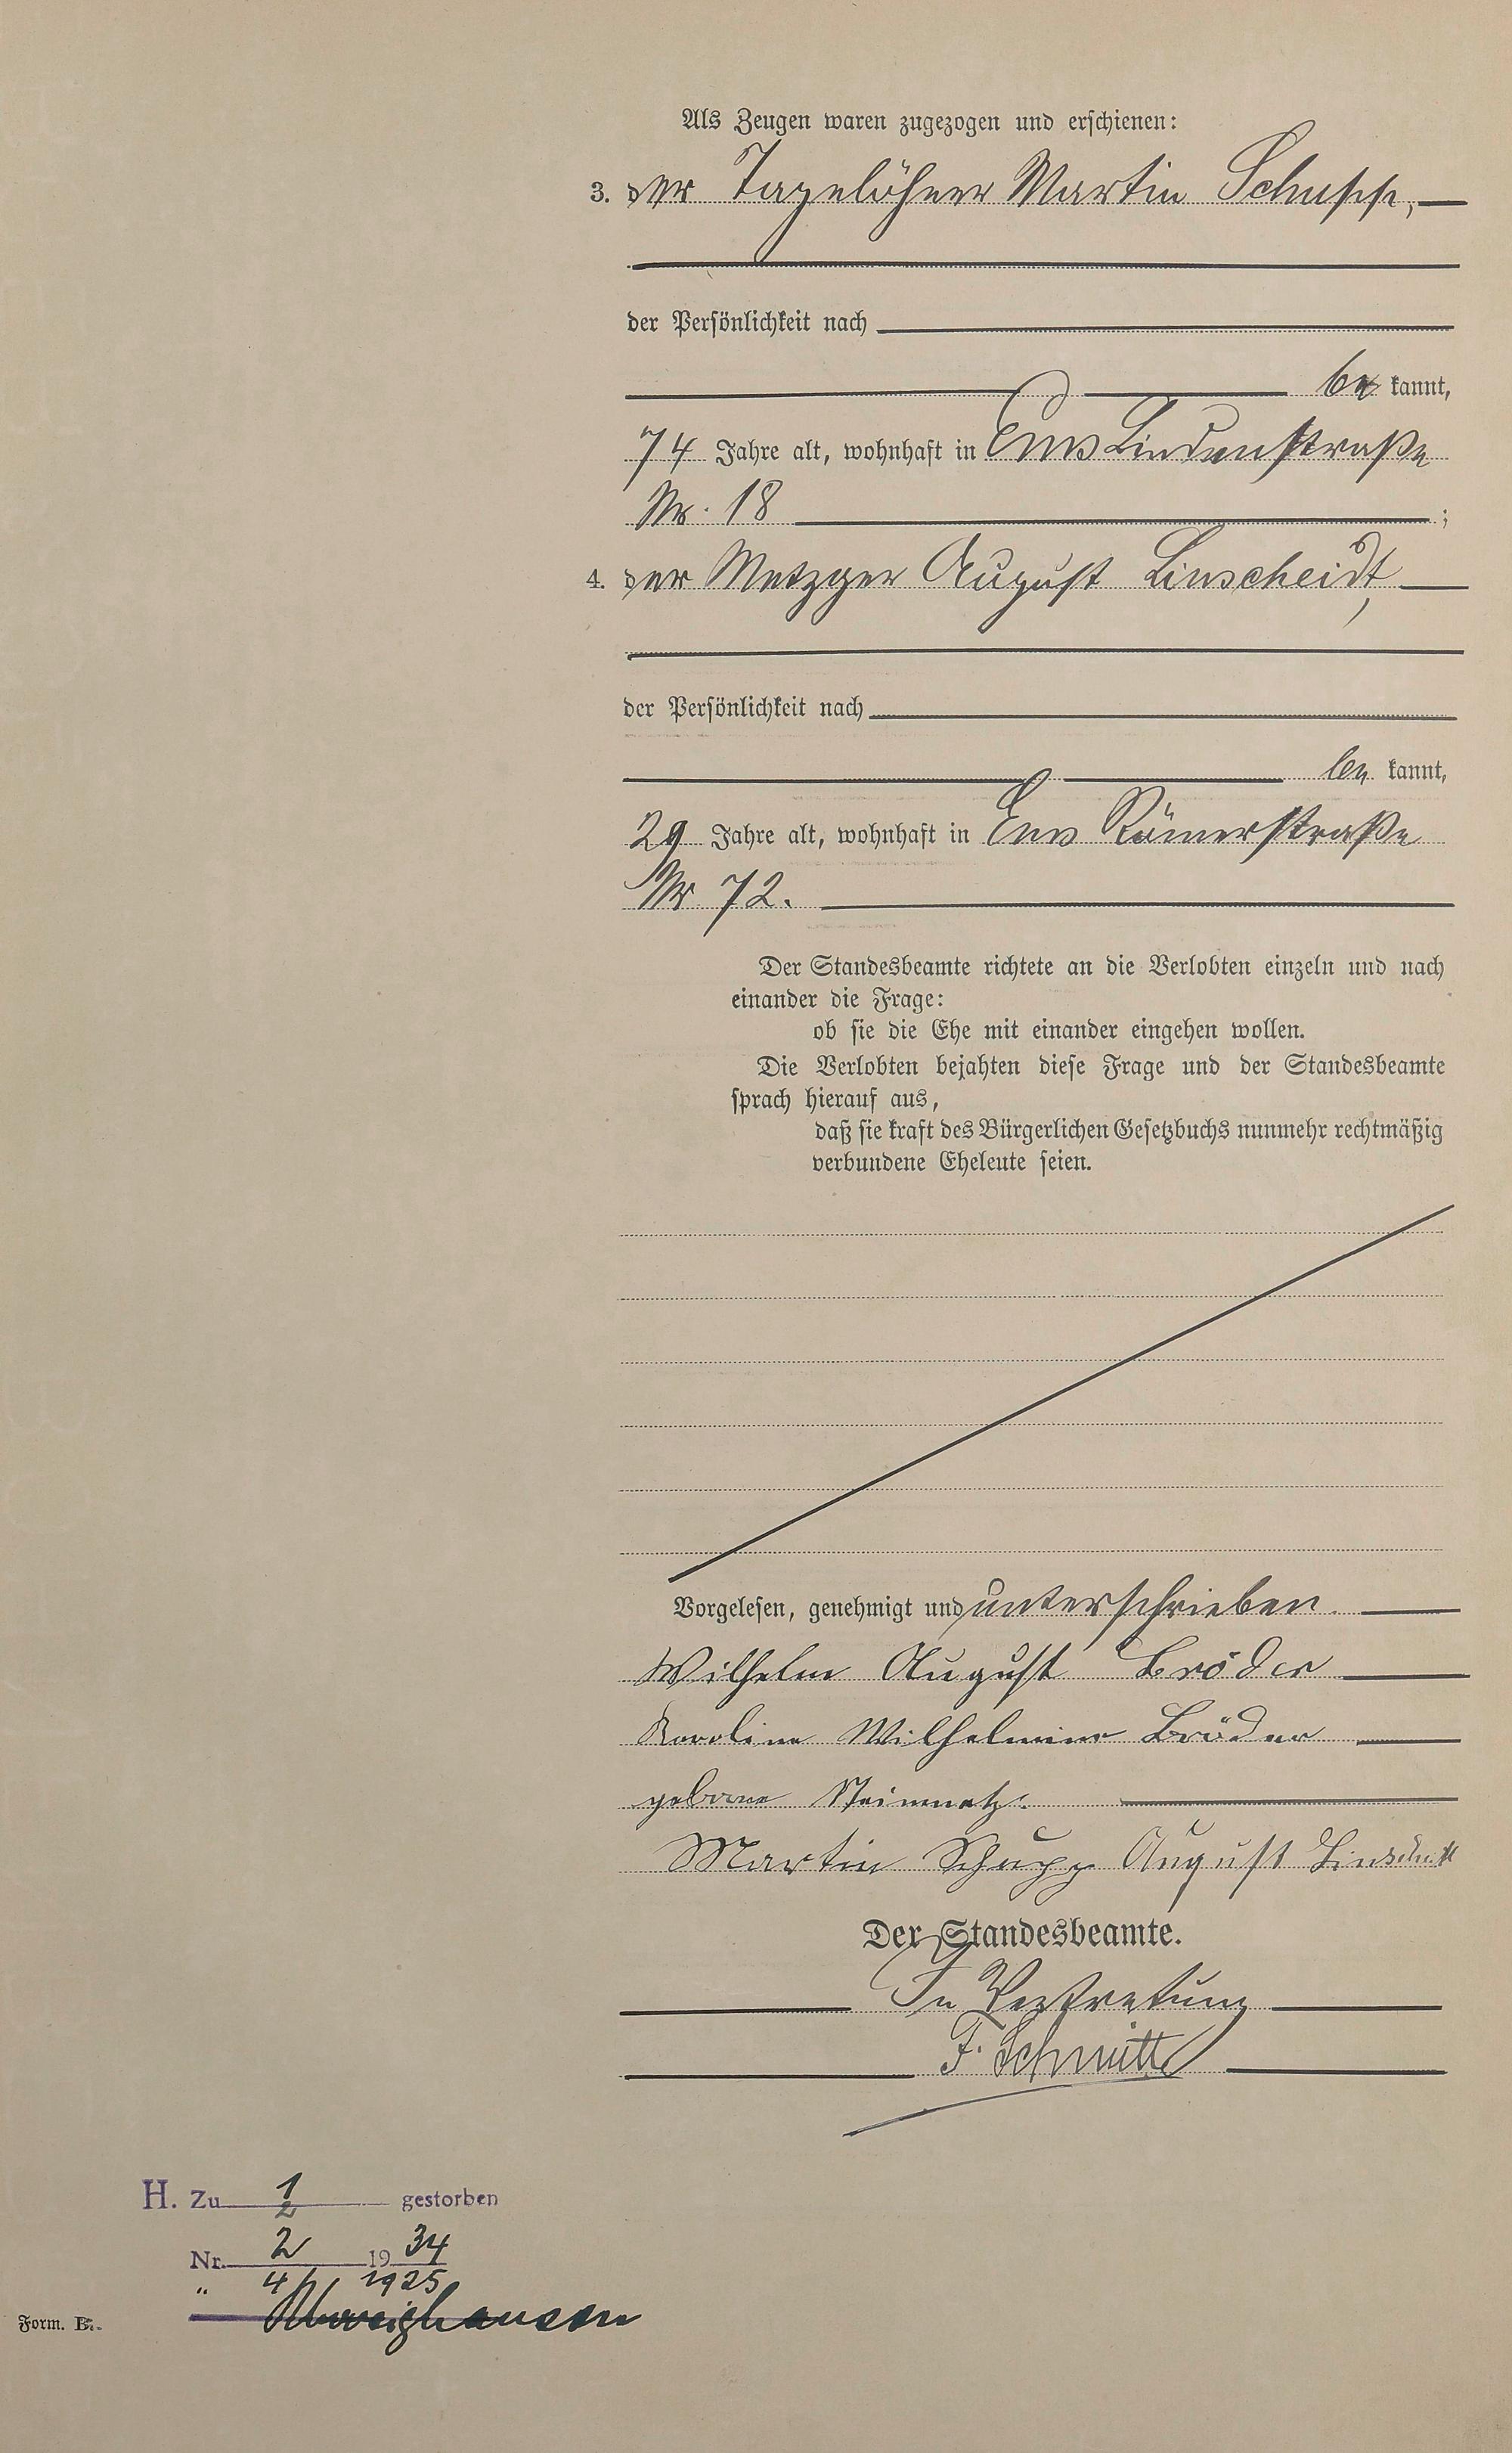 Als Zeugen waren zugezogen und erschienen:
3. der Tagelöhner Martin Schupp,
der Persönlichkeit nach
be kannt,
74 Jahre alt, wohnhaft in Ems Lindenstraße
Nr. 18 ;
4. der Metzger August Linscheidt,
der Persönlichkeit nach
be kannt,
29 Jahre alt, wohnhaft in Ems Römerstraße
Nr 72.
Der Standesbeamte richtete an die Verlobten einzeln und nach
einander die Frage:
ob sie die Ehe mit einander eingehen wollen.
Die Verlobten bejahten diese Frage und der Standesbeamte
sprach hierauf aus,
daß sie kraft des Bürgerlichen Gesetzbuchs nunmehr rechtmäßig
verbundene Eheleute seien.
Vorgelesen, genehmigt und unterschrieben.
Wilhelm August Bröder
Karoline Wilhelmine Bröder
geborne Steinmetz.
Martin Schupp August Linscheidt
Der Standesbeamte.
In Vertretung
F. Schmitt
H. Zu 1 gestorben
2
Nr. 2 19 34
" 4/ 1925
Form. B.